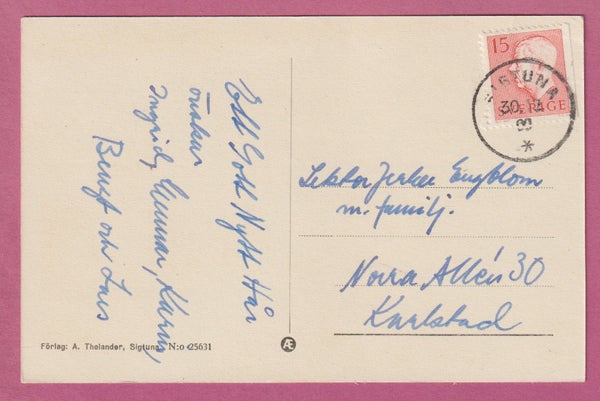 Ett Gott Nytt År
önskar
Ingrid, Gunnar, Karin,
Bengt och Lars
Förlag: A. Thelander, Sigtuna. N:o 25631
Æ
15
SVERIGE
SIGTUNA
30.12
Lektor Engblom
m. familj.
Norra Allén 30
Karlstad